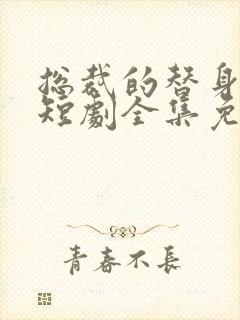 总裁的替身
短劇全集免
青春不長